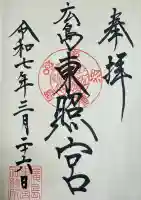 奉拝
広島東照宮
令和七年三月二十六日